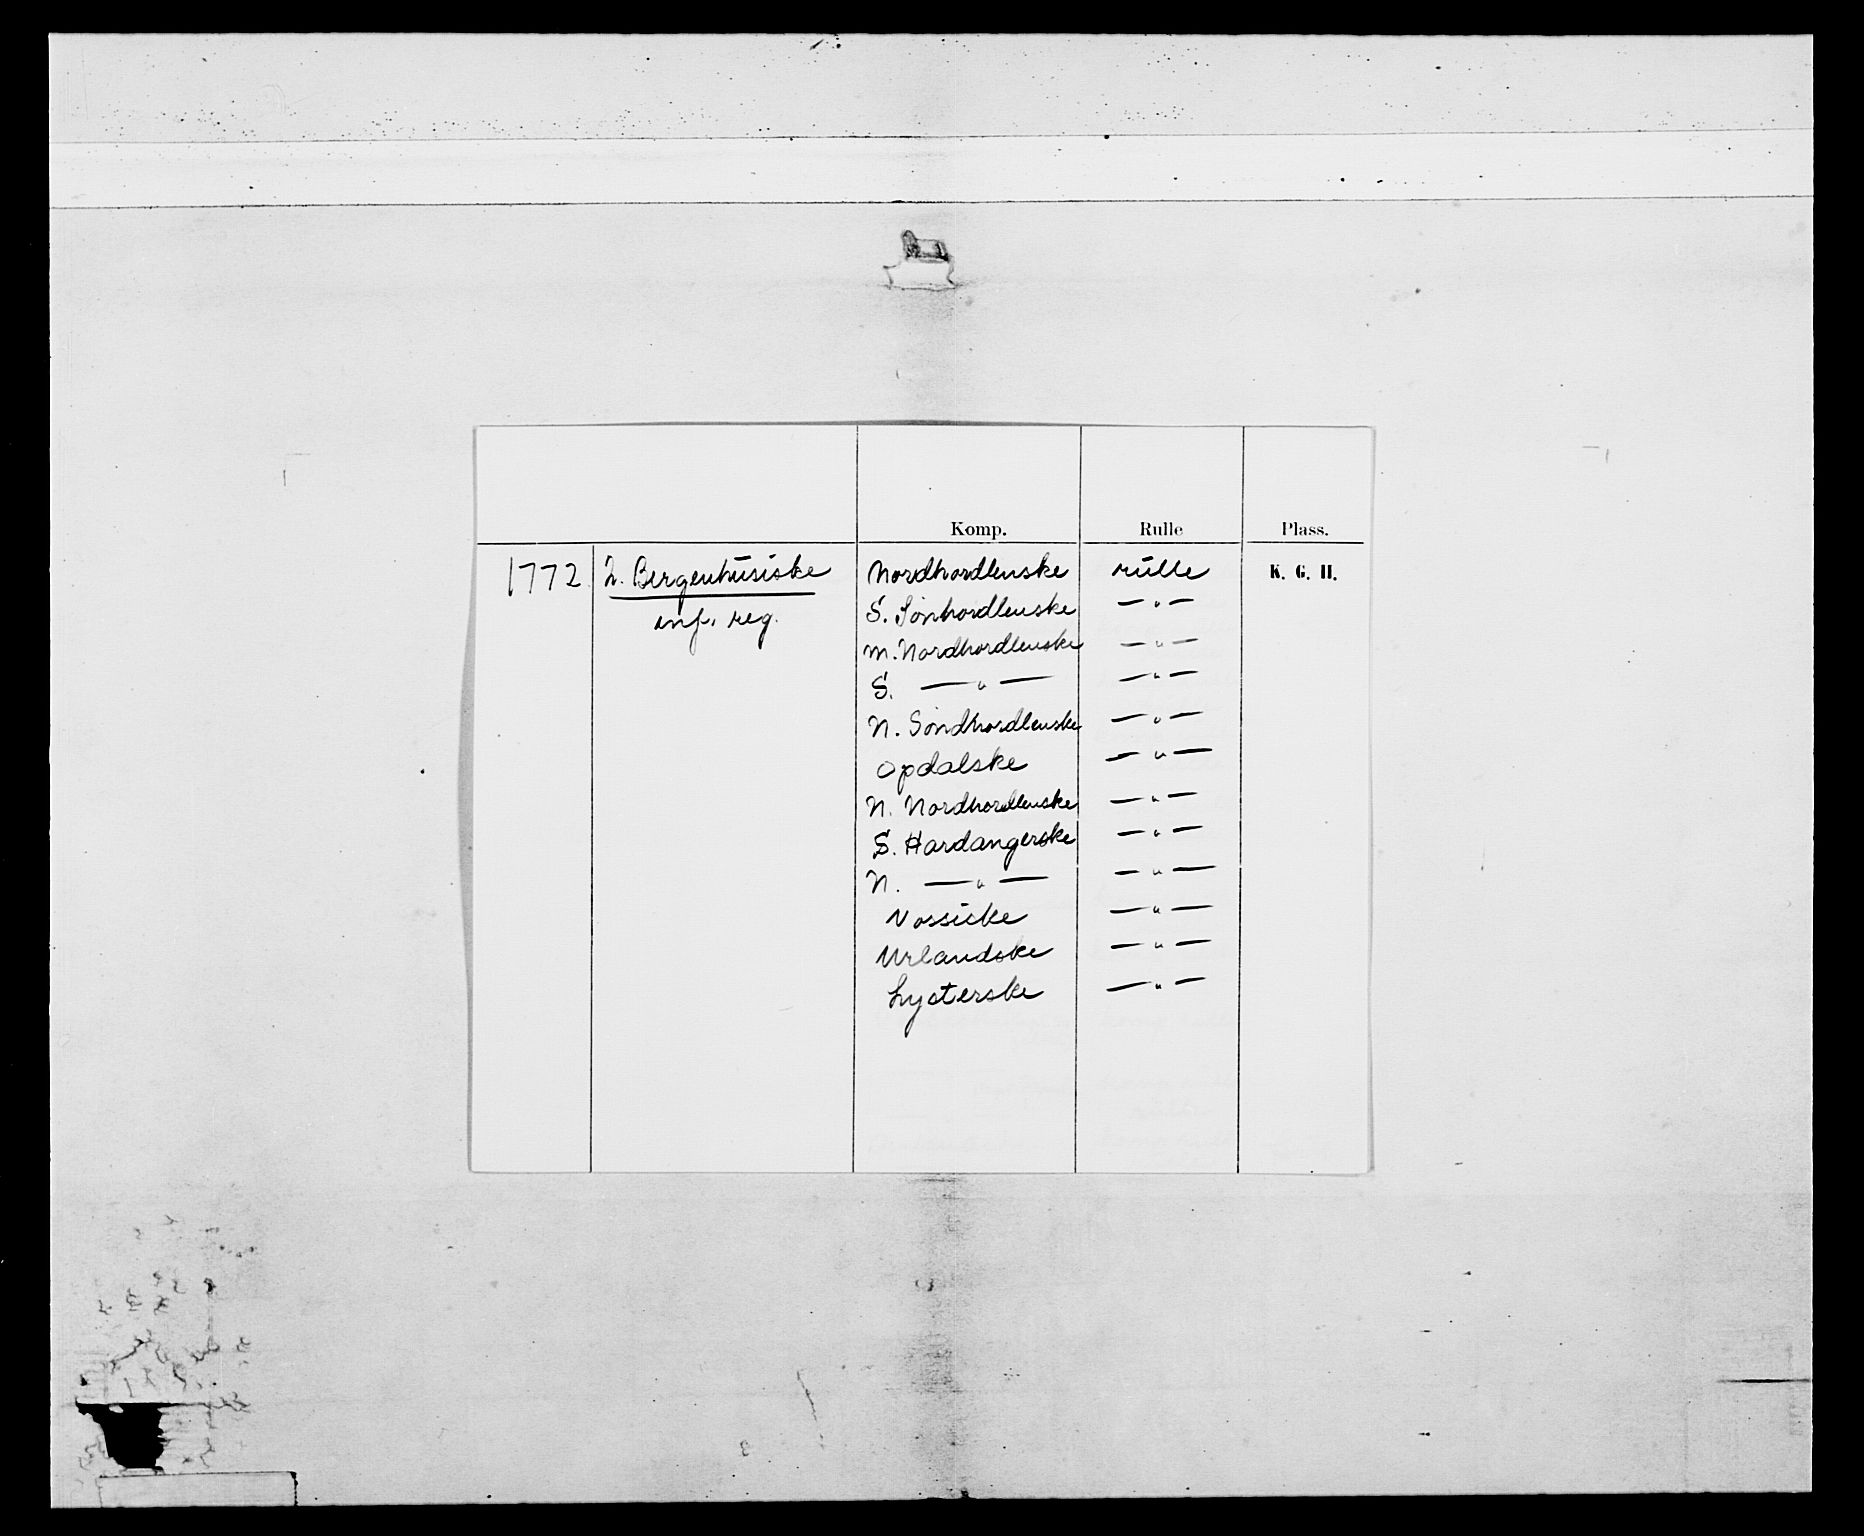 Komp. Rulle Plass.
1772 2. Bergenhusiske Nordhordlenske rulle K. G. H.
inf. reg. S. Sønhordlenske — " —
M. Nordhordlenske — " —
S. — " — — " —
N. Søndhordlenske — " —
Opdalske — " —
N. Nordhordlenske — " —
S. Hardangerske — " —
N. — " — — " —
Vossiske — " —
Urlandske — " —
Lysterske — " —